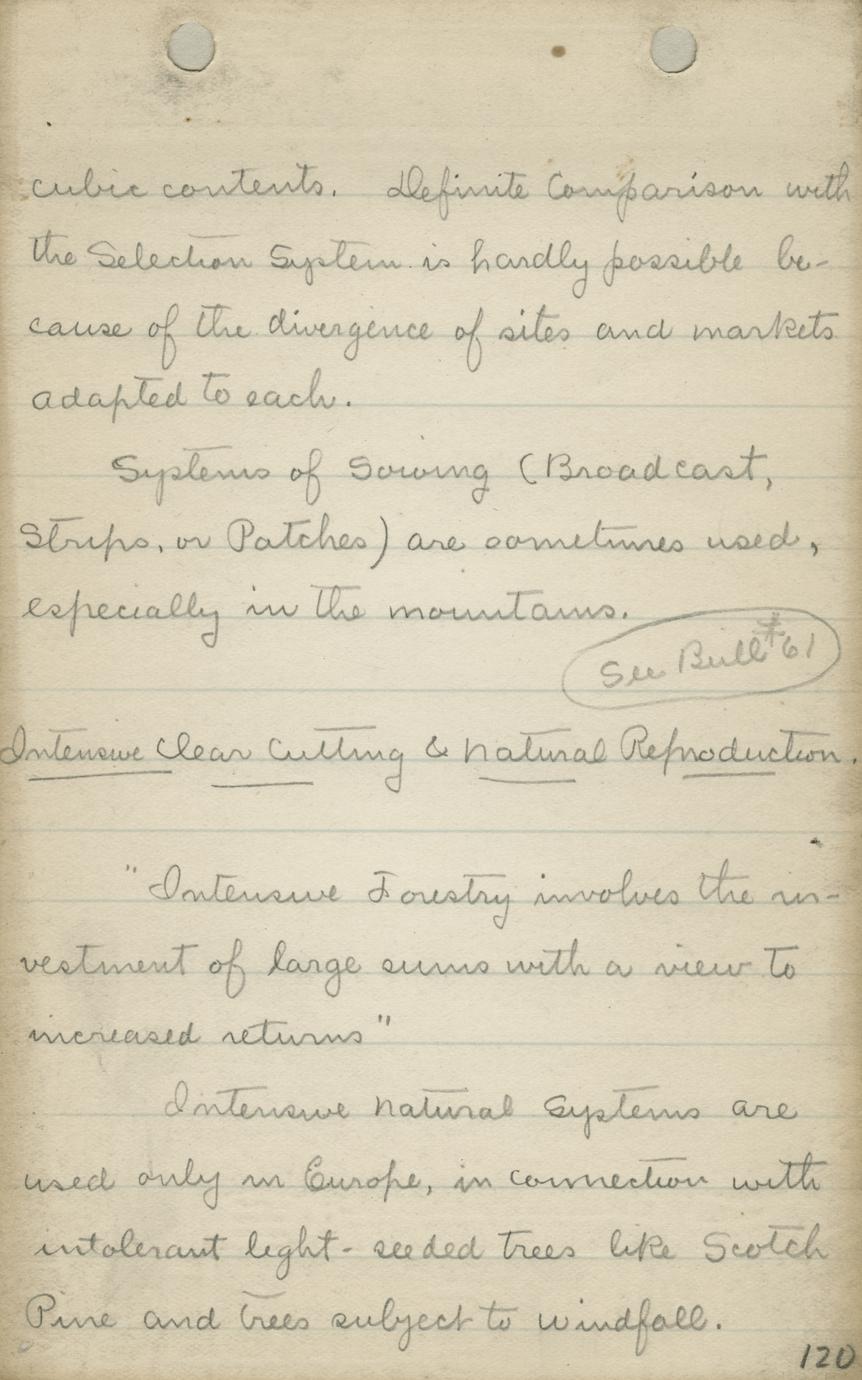 cubic contents. Definite Comparison with
the Selection System is hardly possible be-
cause of the divergence of sites and markets
adapted to each.
Systems of Sowing (Broadcast,
Strips, or Patches) are sometimes used,
especially in the mountains.
See Bull #61
Intensive Clear Cutting & Natural Reproduction.
"Intensive Forestry involves the in-
vestment of large sums with a view to
increased returns"
Intensive Natural Systems are
used only in Europe, in connection with
intolerant light-seeded trees like Scotch
Pine and trees subject to windfall.
120